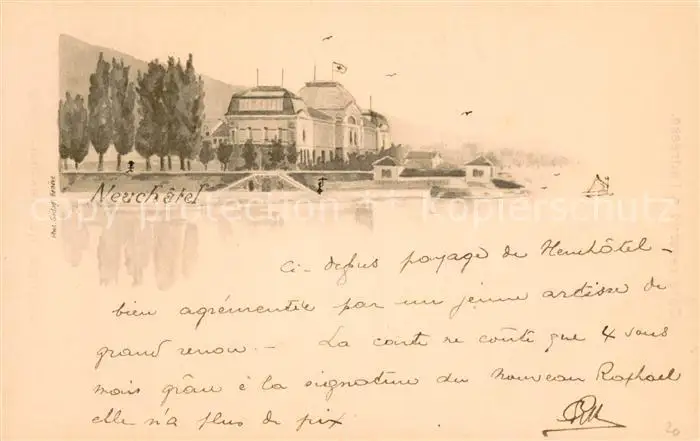 Neuchâtel
Ci-dessus paysage de Neuchâtel -
bien agrémentée par un jeune artiste de
grand renom. - La carte ne coûte que 4 sous
mais grâce à la signature du nouveau Raphael
elle n'a plus de prix
20
copyright-bildschutz